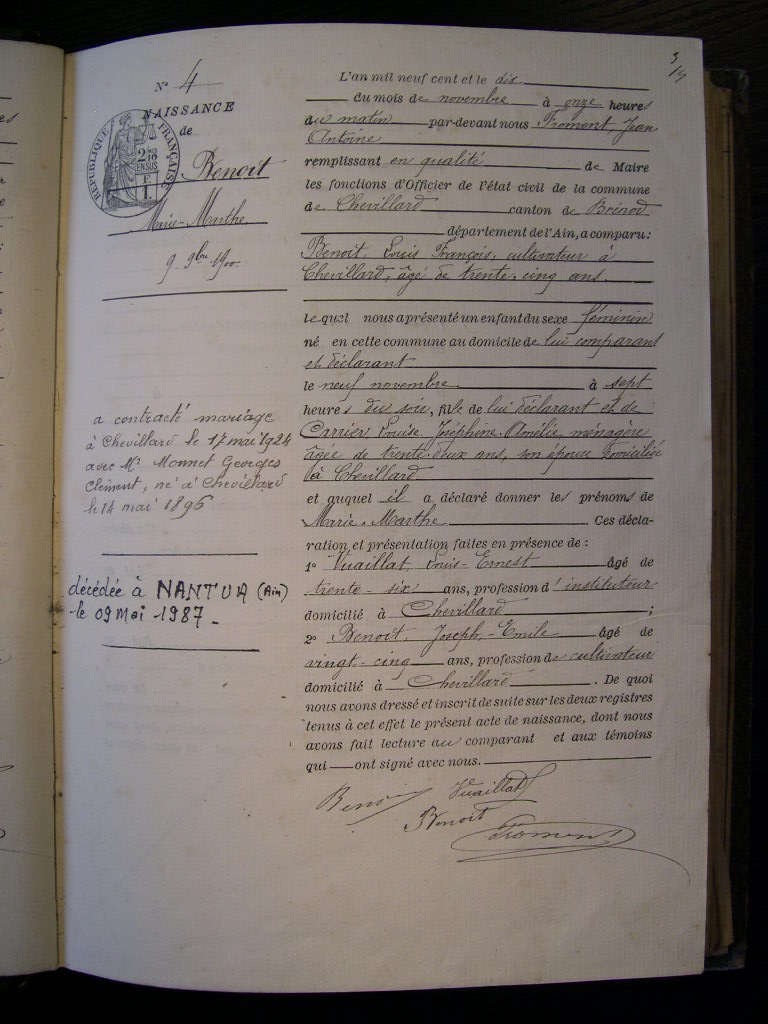 5/14
N° 4
NAISSANCE
de
RÉPUBLIQUE FRANÇAISE
2/10 EN SUS
F. 1.
Benoit
Marie-Marthe
9 9bre 1900.
a contracté mariage
à Chevillard le 17 mai 1924
avec Mr Monnet Georges
Clément, né à Chevillard
le 14 mai 1896
décédée à NANTUA (Ain)
le 09 Mai 1987.
L'an mil neuf cent et le dix
du mois de novembre à onze heures
du matin par-devant nous Froment, Jean
Antoine
remplissant en qualité de Maire
les fonctions d'Officier de l'état civil de la commune
de Chevillard canton de Brénod
département de l'Ain, a comparu:
Benoit, Louis François, cultivateur à
Chevillard, âgé de trente-cinq ans.
lequel nous a présenté un enfant du sexe féminin
né en cette commune au domicile de lui comparant
et déclarant
le neuf novembre à sept
heures du soir, fille de lui déclarant et de
Carrier Louise, Joséphine-Amélie, ménagère
âgée de trente-deux ans, son épouse domiciliée
à Chevillard
et auquel il a déclaré donner les prénoms de
Marie-Marthe Ces décla-
ration et présentation faites en présence de :
1° Vuaillat, Louis-Ernest âgé de
trente-six ans, profession d'instituteur
domicilié à Chevillard ;
2° Benoit, Joseph-Emile âgé de
vingt-cinq ans, profession de cultivateur
domicilié à Chevillard. De quoi
nous avons dressé et inscrit de suite sur les deux registres
tenus à cet effet le présent acte de naissance, dont nous
avons fait lecture au comparant et aux témoins
qui ont signé avec nous.
Benoit Vuaillat
Benoit
Froment